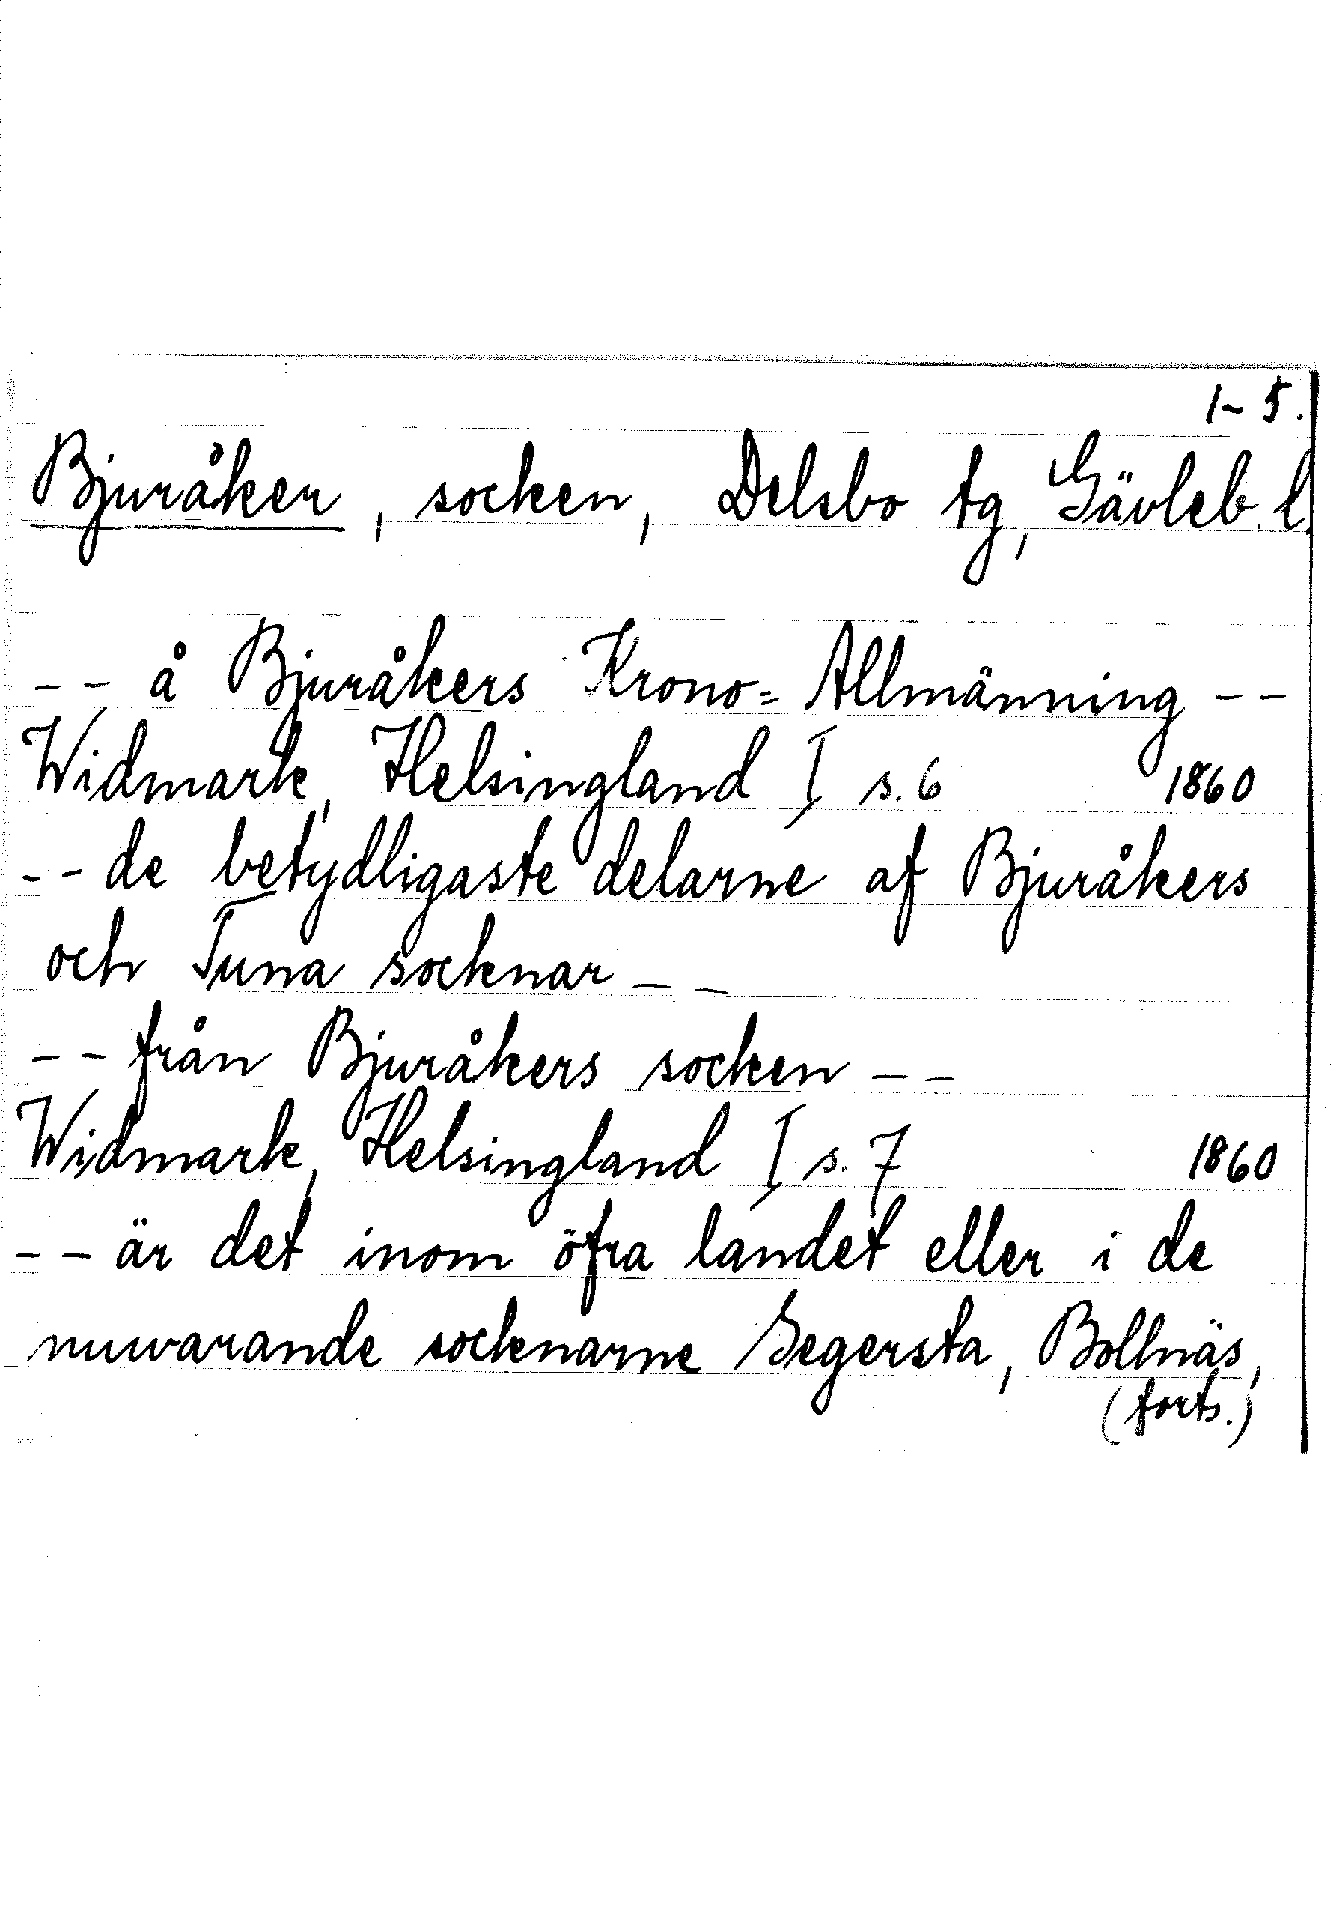 1-5.
Bjuråker, socken, Delsbo tg, Gävleb. l.
-- å Bjuråkers Krono= Allmänning --
Widmark, Helsingland I s. 6 1860
-- de betydligaste delarne af Bjuråkers
och Tuna socknar --
-- från Bjuråkers socken --
Widmark, Helsingland I s. 7 1860
-- är det inom öfra landet eller i de
nuwarande socknarne Segersta, Bollnäs,
(forts.)